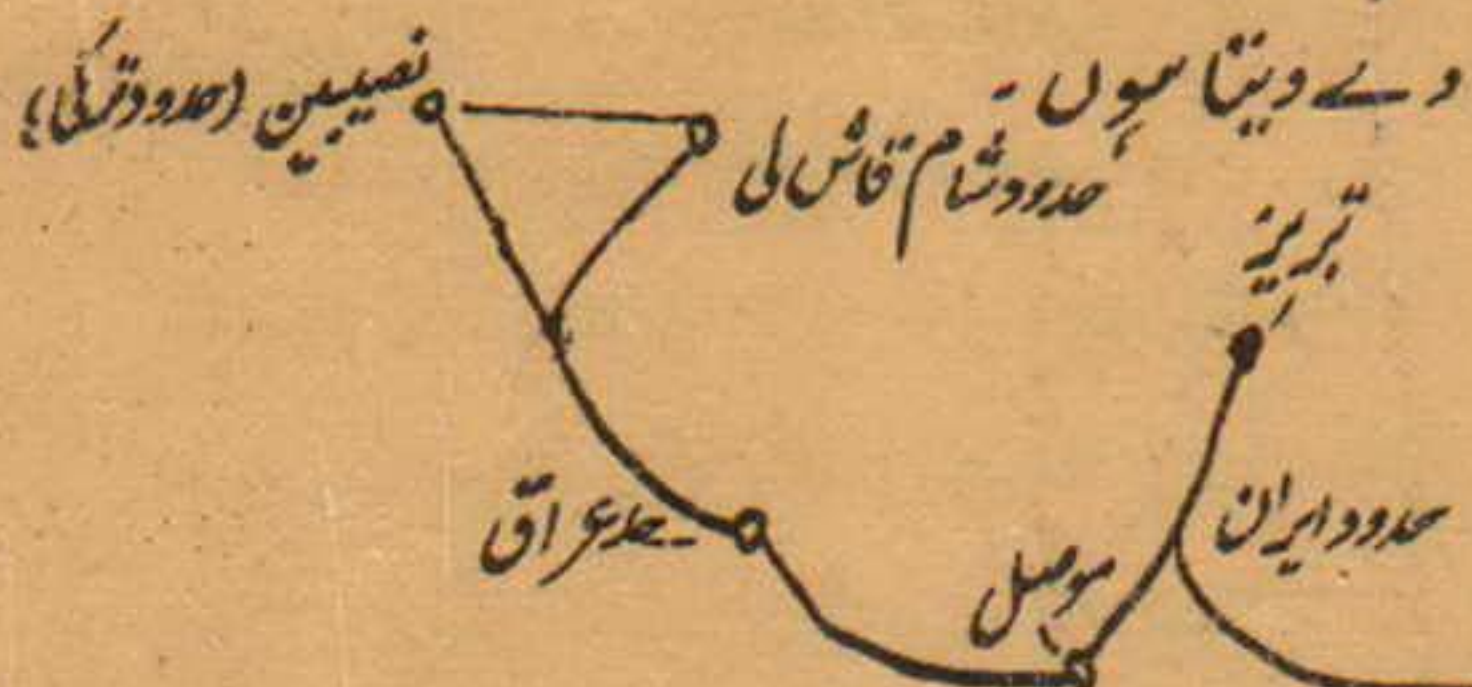 دے دیتا ہوں۔
نصیبین (حدود ترکی)
حدود شام قاش لی
تبریز
حد عراق
موصل
حدود ایران